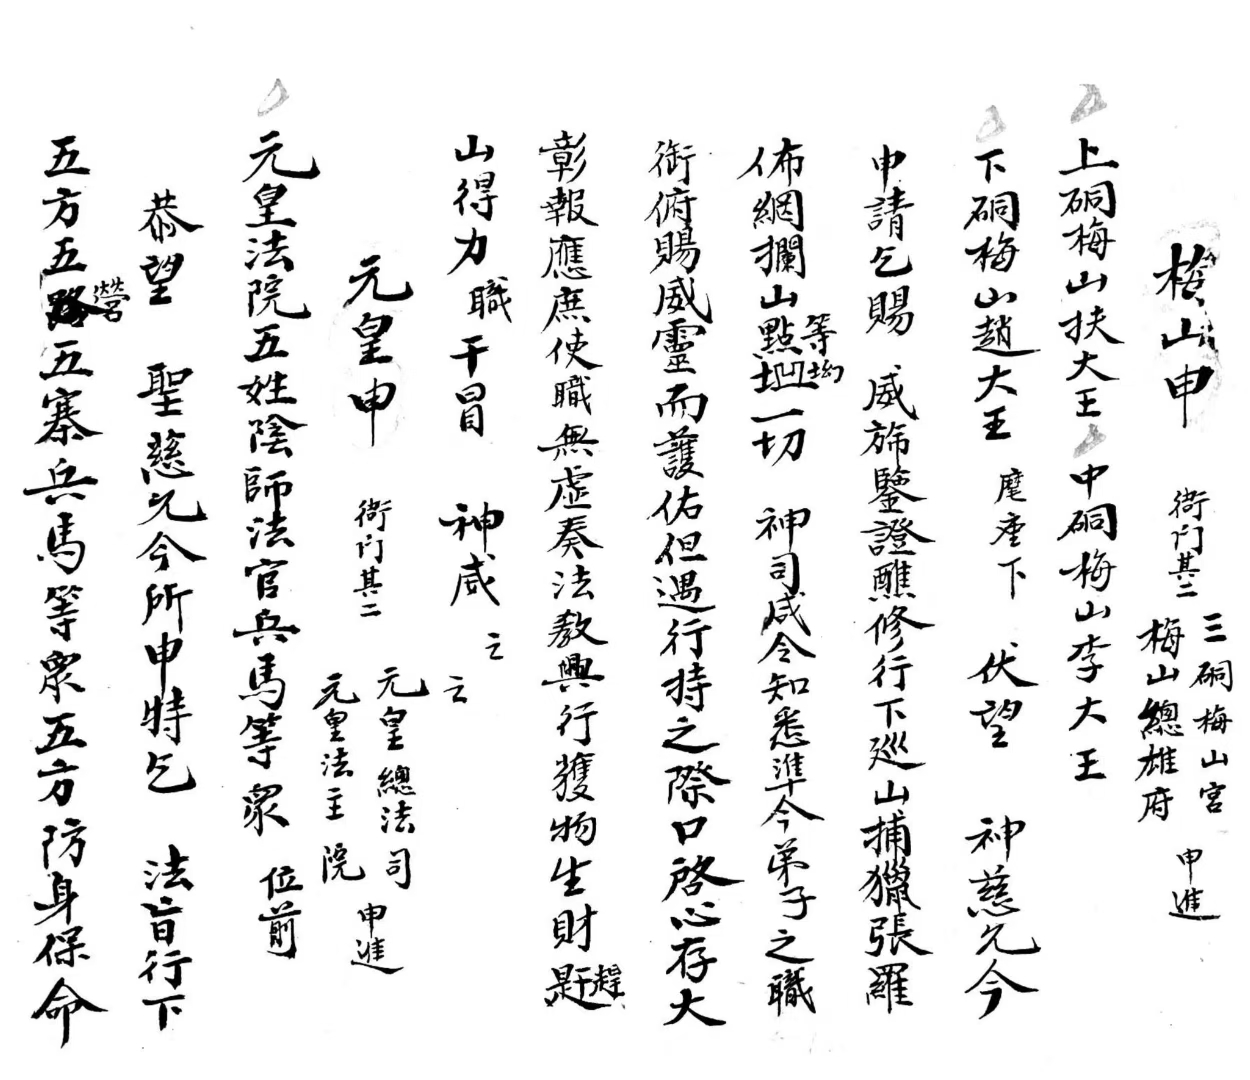 梅山申 衙门其二 三硐梅山宮 梅山總雄府 申進
上硐梅山扶大王 中硐梅山李大王
下硐梅山趙大王 麾座下 伏望 神慈允今
申請乞賜 威斾鑒證醮修行下巡山捕獵張羅
佈網攔山點𡊨等坳一切 神司咸令知悉準今弟子之職
銜俯賜威靈而護佑但遇行持之際口啓心存大
彰報應庶使職無虛奏法教興行獲物生財趕
山得力 職干冒 神威 云云
元皇申 衙门其二 元皇總法司 元皇法主院 申進
元皇法院五姓陰師法官兵馬等衆 位前
恭望 聖慈允今所申特乞 法旨行下
五方五營五寨兵馬等衆五方防身保命